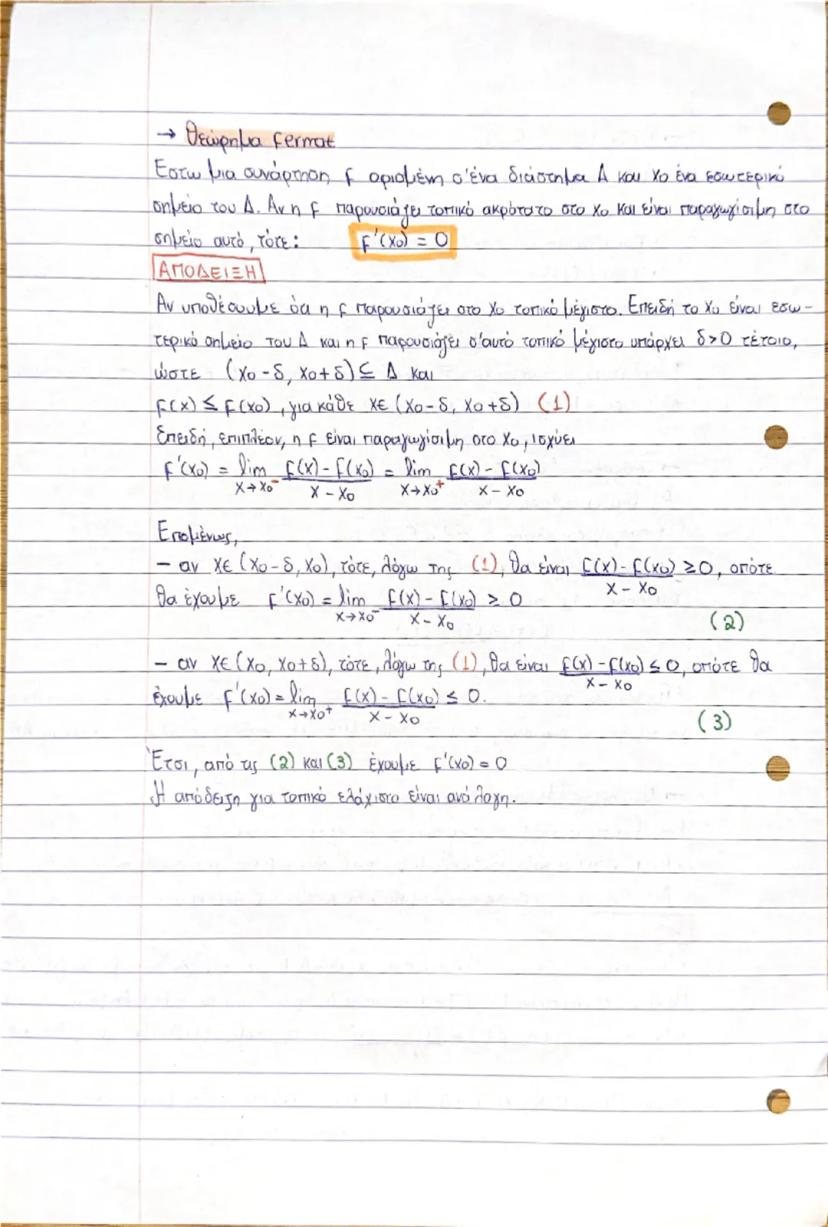 → Θεώρημα Fermat
Έστω μια συνάρτηση f ορισμένη σ'ένα διάστημα Δ και x₀ ένα εσωτερικό
σημείο του Δ. Αν η f παρουσιάζει τοπικό ακρότατο στο x₀ και είναι παραγωγίσιμη στο
σημείο αυτό, τότε: f'(x₀) = 0
ΑΠΟΔΕΙΞΗ
Αν υποθέσουμε ότι η f παρουσιάζει στο x₀ τοπικό μέγιστο. Επειδή το x₀ είναι εσω-
τερικό σημείο του Δ και η f παρουσιάζει σ'αυτό τοπικό μέγιστο υπάρχει δ>0 τέτοιο,
ώστε (x₀-δ, x₀+δ) ⊆ Δ και
f(x) ≤ f(x₀), για κάθε x∈(x₀-δ, x₀+δ) (1)
Επειδή, επιπλέον, η f είναι παραγωγίσιμη στο x₀, ισχύει
f'(x₀) = lim x→x₀⁻ (f(x)-f(x₀))/(x-x₀) = lim x→x₀⁺ (f(x)-f(x₀))/(x-x₀)
Επομένως,
- αν x∈(x₀-δ, x₀), τότε, λόγω της (1), θα είναι (f(x)-f(x₀))/(x-x₀) ≥0, οπότε
θα έχουμε f'(x₀) = lim x→x₀⁻ (f(x)-f(x₀))/(x-x₀) ≥ 0 (2)
- αν x∈(x₀, x₀+δ), τότε, λόγω της (1), θα είναι (f(x)-f(x₀))/(x-x₀) ≤0, οπότε θα
έχουμε f'(x₀) = lim x→x₀⁺ (f(x)-f(x₀))/(x-x₀) ≤ 0. (3)
Έτσι, από τις (2) και (3) έχουμε f'(x₀) = 0
Η απόδειξη για τοπικό ελάχιστο είναι ανάλογη.